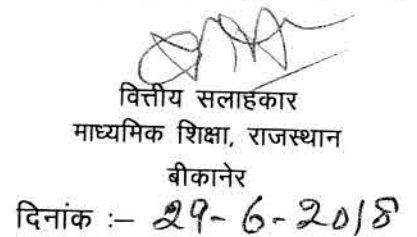 वित्तीय सलाहकार
माध्यमिक शिक्षा, राजस्थान
बीकानेर
दिनांक :– 29-6-2018